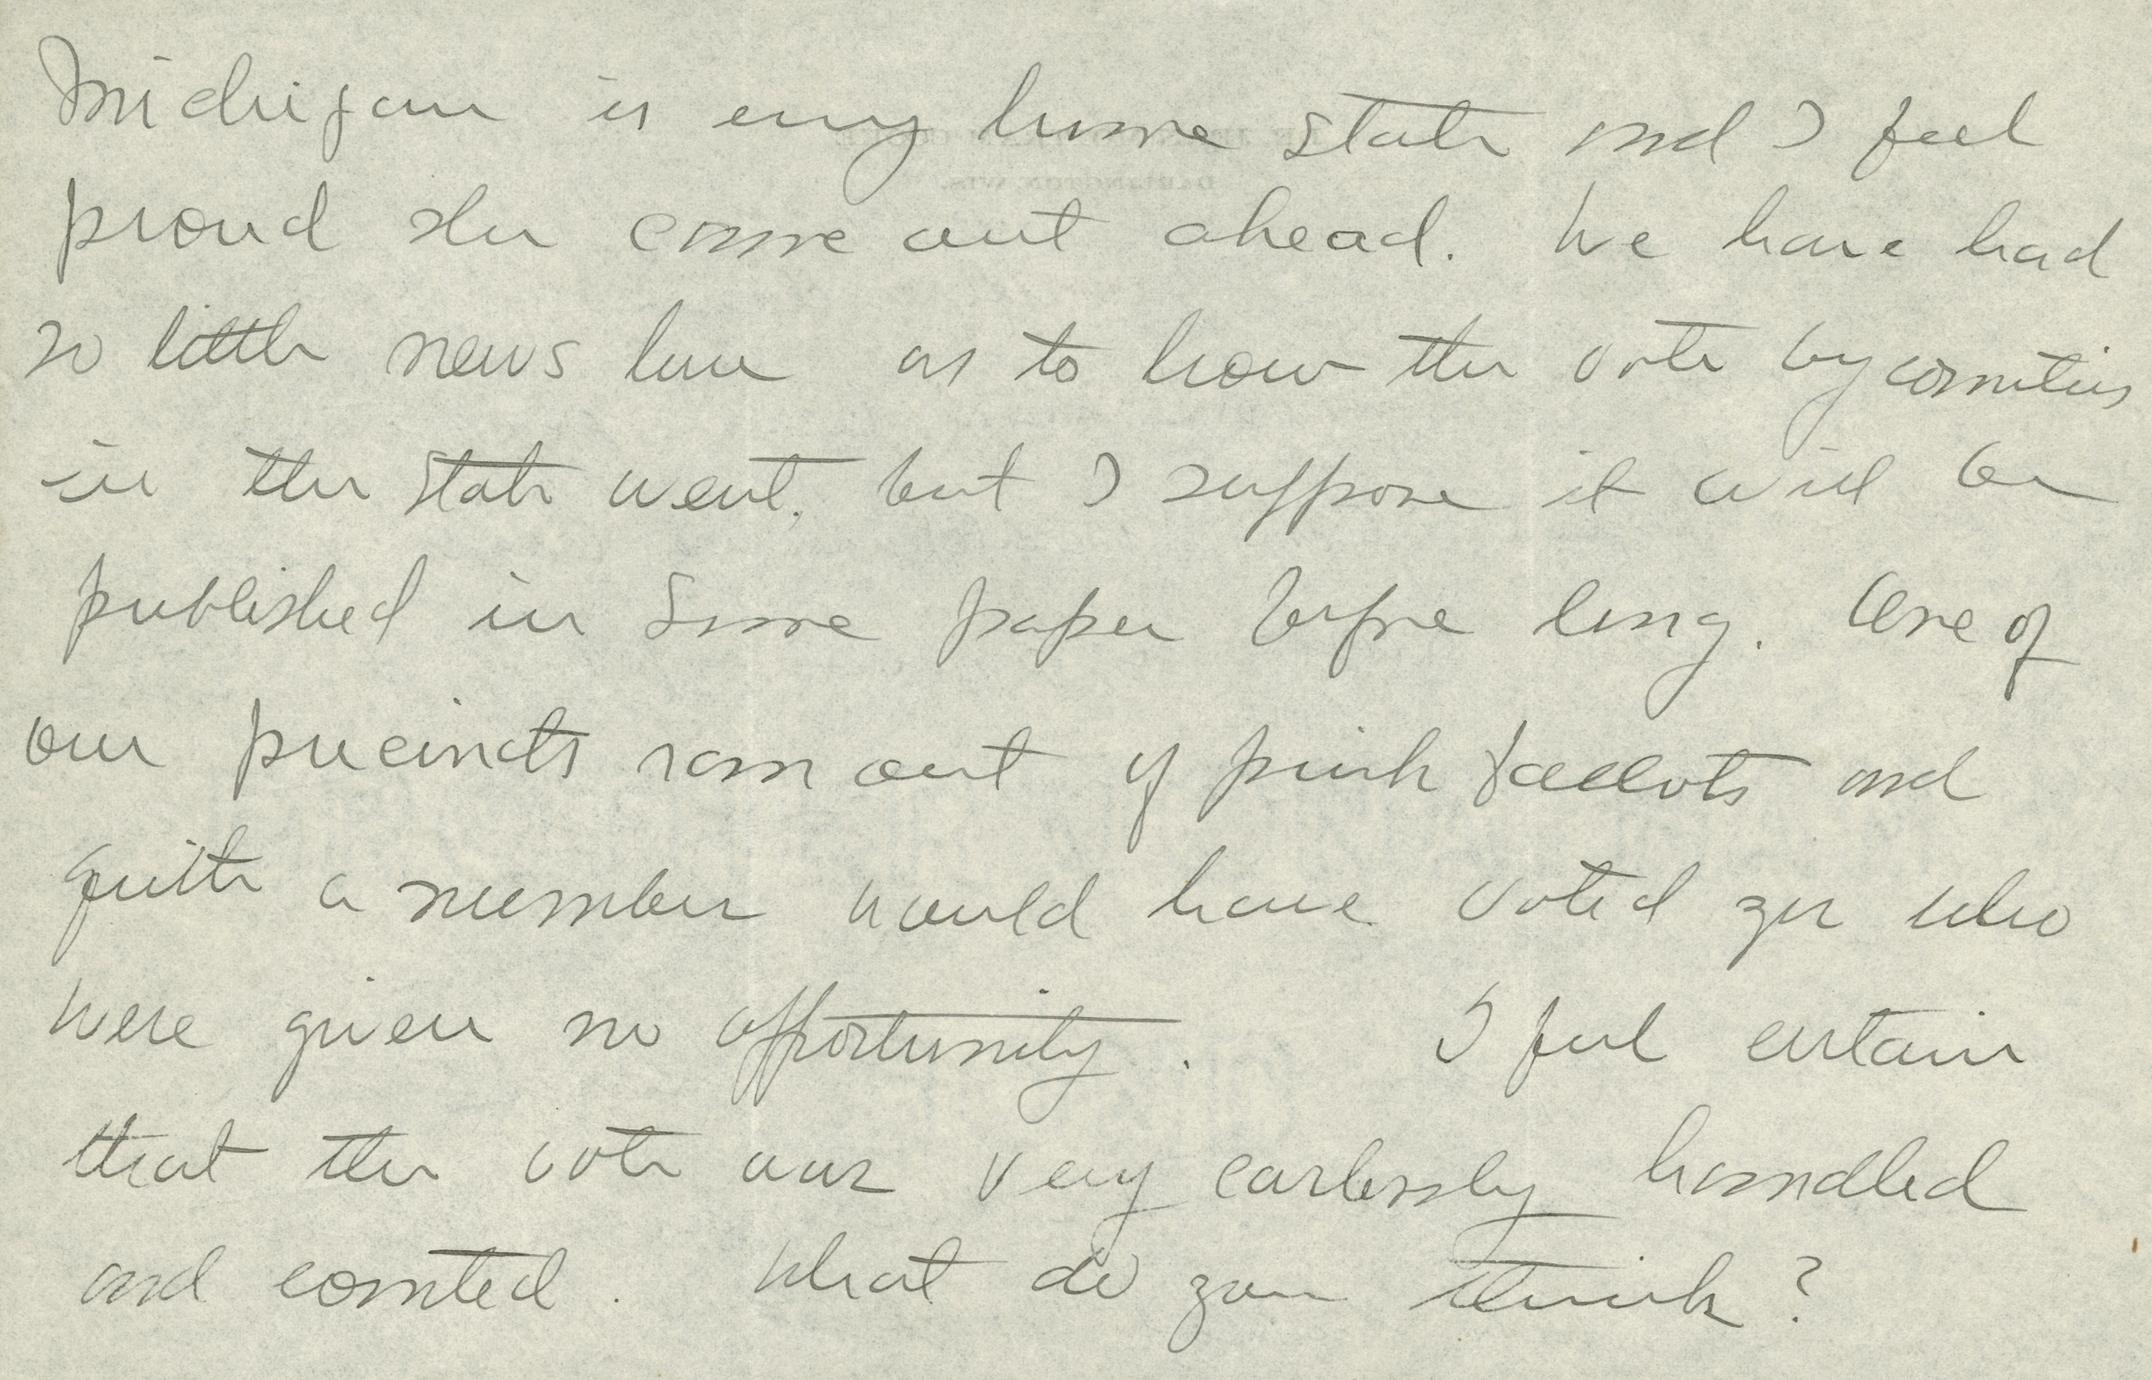 Michigan is my home state and I feel
proud she came out ahead. We have had
so little news here as to how the vote by counties
in the state went, but I suppose it will be
published in some paper before long. One of
our precincts ran out of pink ballots and
quite a number would have voted yes who
were given no opportunity. I feel certain
that the vote was very carlessly handled
and counted. What do you think?